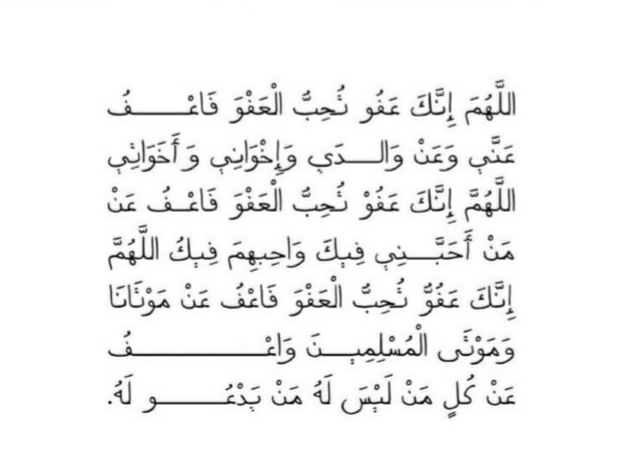 اللَّهُمَ إِنَّكَ عَفُو تُحِبُّ الْعَفْوَ فَاعْـــــفُ
عَنَّي وَعَنْ وَالـــدَي وَإِخْوَانِي وَ أَخَوَاتِي
اللَّهُمَّ إِنَّكَ عَفُوْ تُحِبُّ الْعَفْوَ فَاعْـفُ عَنْ
مَنْ أَحَبَّـــنِي فِيكَ وَاحِبهِمَ فِيكُ اللَّهُمَّ
إِنَّكَ عَفُوٌّ تُحِبُّ الْعَفْوَ فَاعْفُ عَنْ مَوْتَانَا
وَمَوْتَى الْمُسْلِمِيــنَ وَاعْـــــــــــفُ
عَنْ كُلٍ مَنْ لَيْسَ لَهُ مَنْ يَدْعُـــــــو لَهُ.